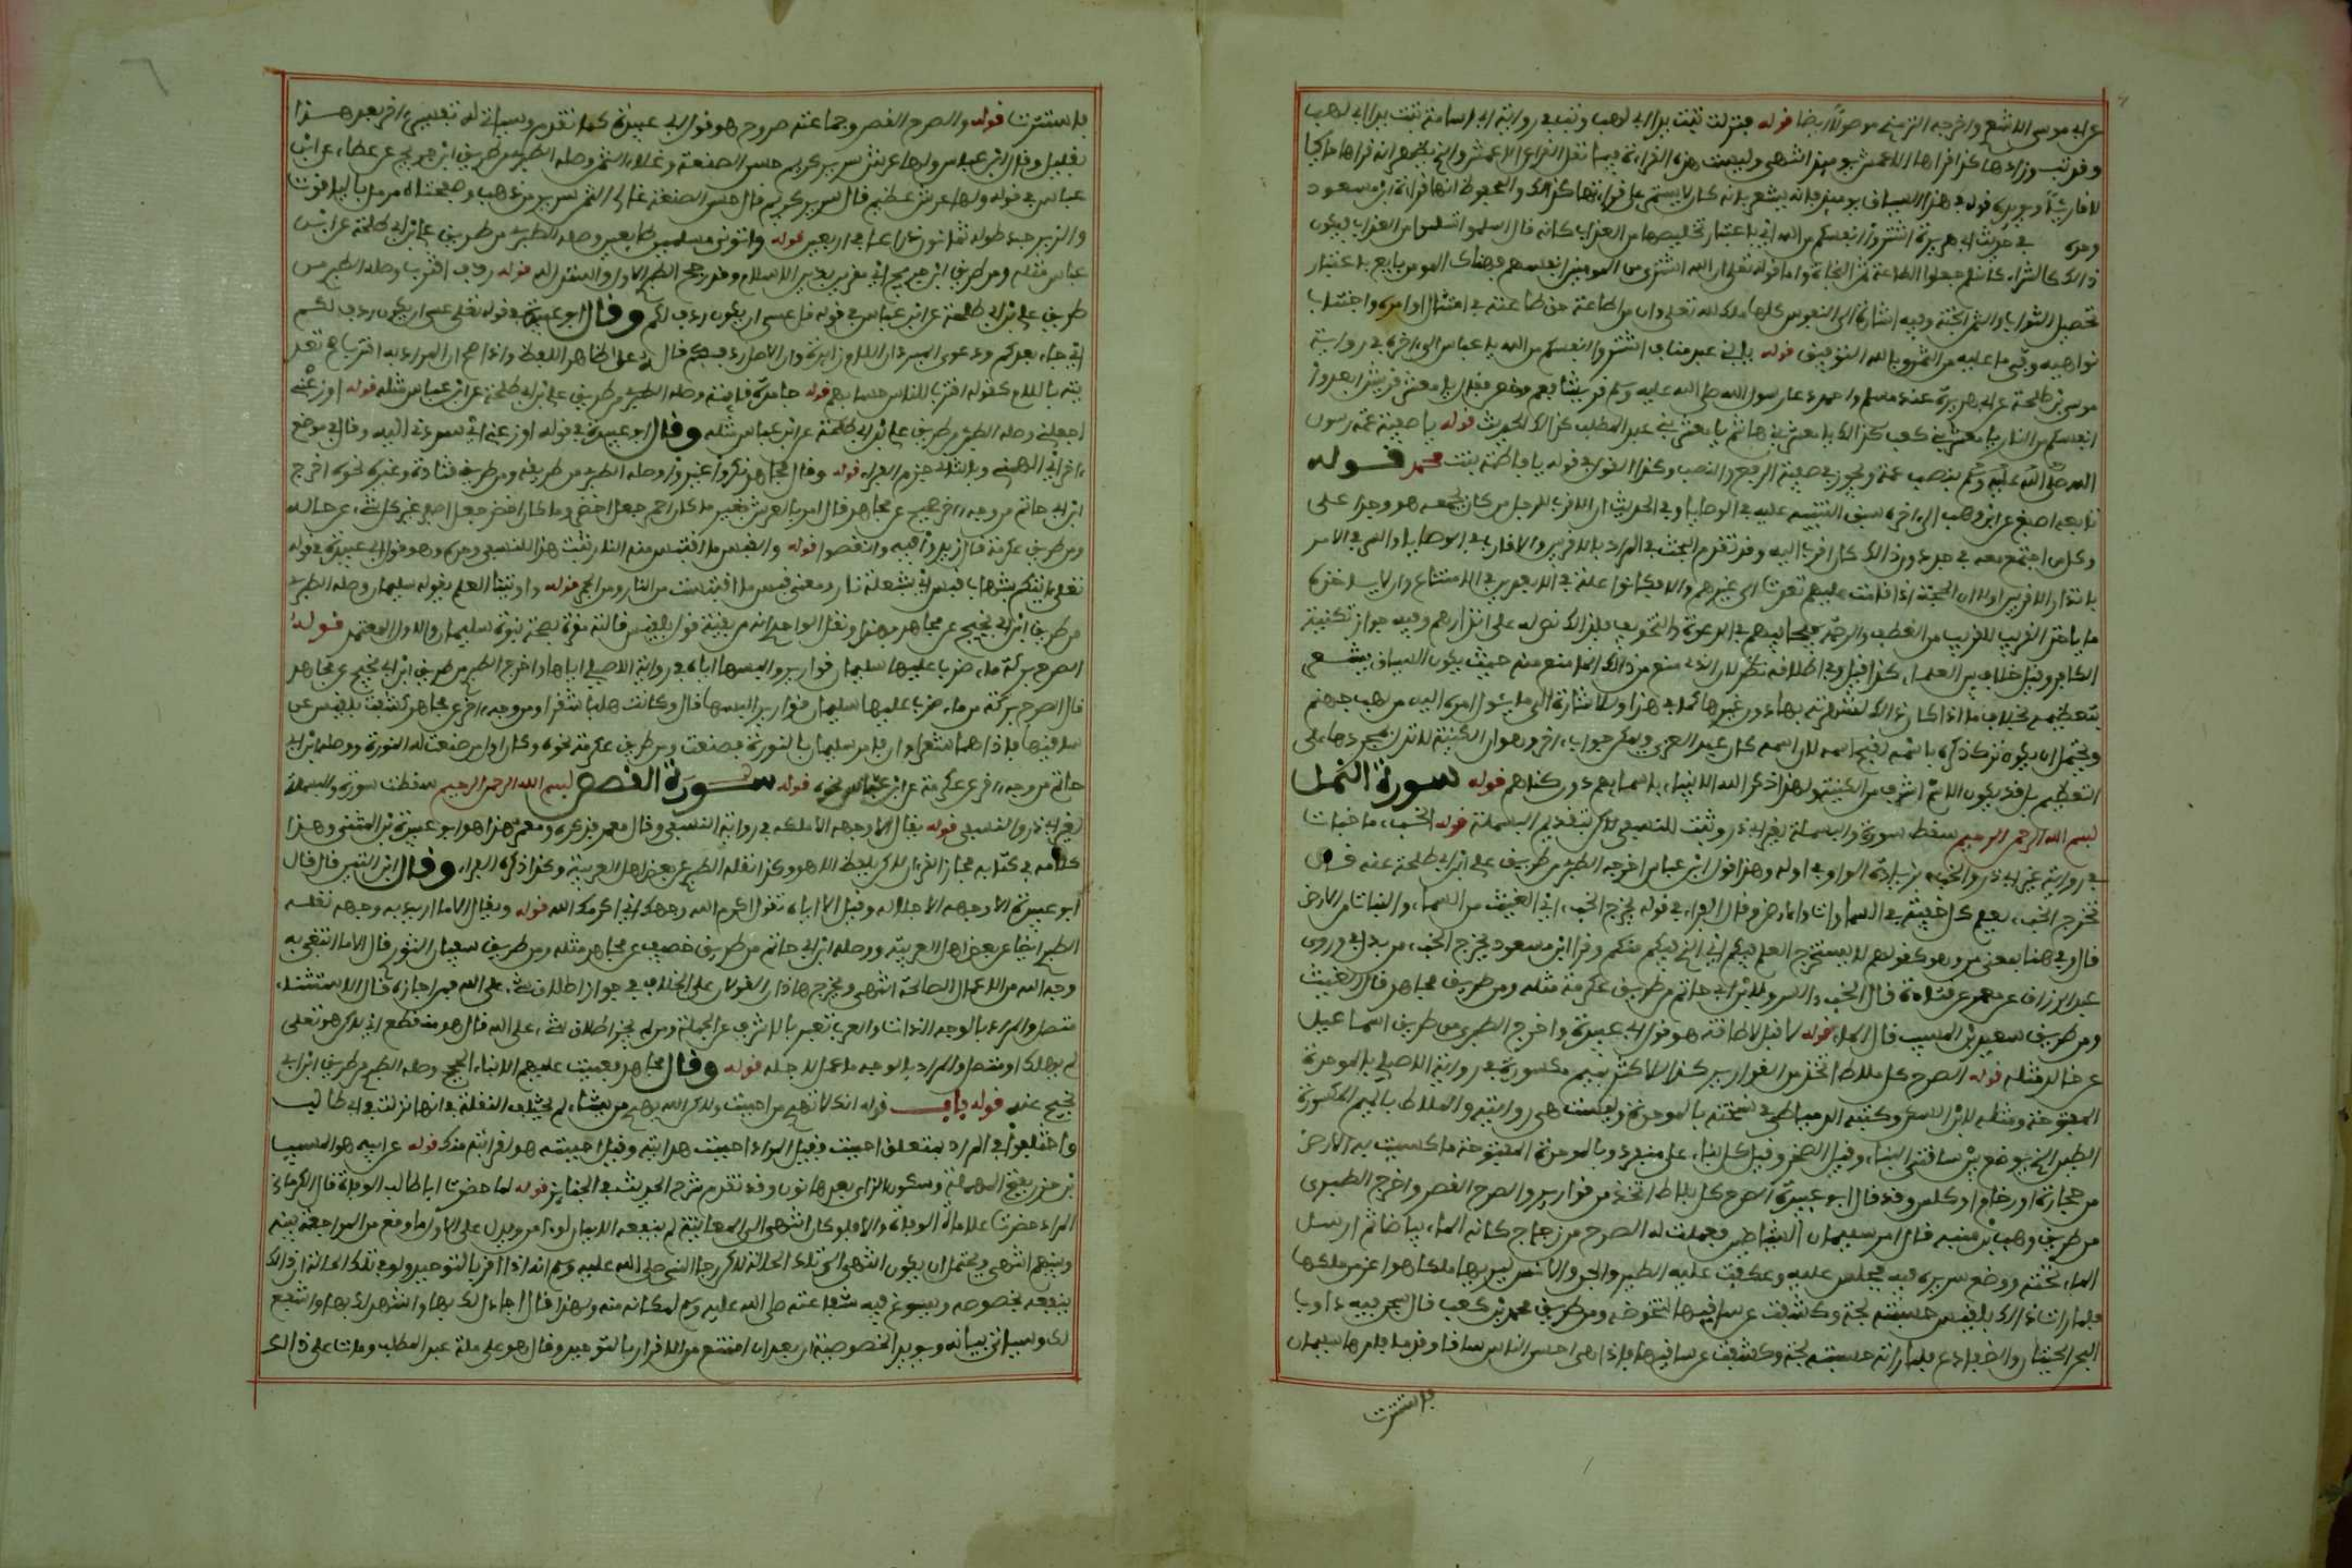 عن ابي موسى الاشعري واخرجه الترمذي موصولا ايضا قوله فنزلت تبت يدا ابي لهب وتب في رواية ابي اسامة تبت يدا ابي لهب
وقد تب وزاد هكذا قراها الاعمش يومئذ انتهى وليست هذه القراءة فيما نقل الفراء عن الاعمش والذي يظهر انه قراها حاكيا
لا قاريا ويؤيده قوله في هذا السياق يومئذ فانه يشعر بانه كان لا يستمر على قراءتها كذلك والمحفوظ انها قراءة ابن مسعود
وحده في حديث ابي هريرة اشتروا انفسكم من الله اي باعتبار تخليصها من العذاب كانه قال اسلموا تسلموا من العذاب فيكون
ذلك كالشراء كانهم جعلوا الطاعة ثمن النجاة واما قوله تعالى ان الله اشترى من المومنين انفسهم فهناك المومن بايع باعتبار
تحصيل الثواب والثمن الجنة وفيه اشارة الى ان النفوس كلها ملك لله تعلى وان من اطاعه حق طاعته في امتثال اوامره واجتناب
نواهيه وفى ما عليه من الثمن وبالله التوفيق قوله يا بني عبد مناف اشتروا انفسكم من الله يا عباس الى اخره في رواية
موسى بن طلحة عن ابي هريرة عند مسلم واحمد دعا رسول الله صلى الله عليه وسلم قريشا فعم وخص فقال يا معشر قريش انقذوا
انفسكم من النار يا معشر بني كعب كذلك يا معشر بني هاشم يا معشر بني عبد المطلب كذلك الحديث قوله يا صفية عمة رسول
الله صلى الله عليه وسلم بنصب عمة ويجوز في صفية الرفع والنصب وكذا القول في قوله يا فاطمة بنت محمد قوله
تابعه اصبغ عن ابن وهب الى اخره سبق التنبيه عليه في الوصايا وفي الحديث ان الاقرب للرجل من كان يجمعه هو وجد اعلى
وكل من اجتمع معه في جد دون ذلك كان اقرب اليه وقد تقدم البحث في المراد بالاقربين والاقارب في الوصايا والسر في الامر
بانذار الاقربين اولا ان الحجة اذا قامت عليهم تعدت الى غيرهم والا فكانوا علة في الابعدين في الامتناع وان لا ياخذه
ما ياخذ القريب للقريب من العطف والرحمة فيحابيهم في الدعوة والتخويف فلذلك نص له على انذارهم وفيه جواز تكنية
الكافر وفيه خلاف بين العلماء كذا قيل وفي اطلاقه نظر لان الذي منع من ذلك انما منع منه حيث يكون السياق يشعر
بتعظيمه بخلاف ما اذا كان ذلك لشهرته بها دون غيرها كما في هذا وللاشارة الى ما يئول امره اليه من لهب جهنم
ويحتمل ان يكون ترك ذكره باسمه لقبح اسمه لان اسمه كان عبد العزى ويمكن جواب اخر وهو ان الكنية لا تدل بمجردها على
التعظيم بل قد يكون الاسم اشرف من الكنية ولهذا ذكر الله الانبياء باسمايهم دون كناهم قوله سورة النمل
بسم الله الرحمن الرحيم سقط سورة والبسملة لغير ابي ذر وثبت للنسفي لاكن بتقديم البسملة قوله الخبء ما خبات
في رواية غير ابي ذر والخبء بزيادة الواو في اوله وهذا قول ابن عباس اخرجه الطبري من طريق علي بن ابي طلحة عنه قال
يخرج الخبء يعلم كل خفية في السماوات والارض وقال الفراء في قوله يخرج الخبء اي الغيث من السماء والنبات من الارض
قال وفي هنا بمعنى من وهو كقولهم لا يستخرج العلم فيكم اي الذي فيكم منكم وقرا ابن مسعود يخرج الخبء من بدل في وروى
عبد الرزاق عن معمر عن قتادة قال الخبء السر ولابن ابي حاتم من طريق عكرمة مثله ومن طريق مجاهد قال الغيث
ومن طريق سعيد بن المسيب قال الماء قوله لا قبل لا طاقة هو قول ابي عبيدة واخرج الطبري من طريق اسماعيل
عن خالد مثله قوله الصرح كل ملاط اتخذ من القوارير كذا للاكثر بميم مكسورة في رواية الاصيلي بالموحدة
المفتوحة ومثله لابن السكن وكتبه الدمياطي في نسخته بالموحدة وليست هي روايته والملاط بالميم المكسورة
الطين الذي يوضع بين سافتي البناء وقيل الصخر وقيل كل بناء عال منفرد وبالموحدة المفتوحة ما كسيت به الارض
من حجارة او رخام او كلس وقد قال ابو عبيدة الصرح كل بلاط اتخذ من قوارير والصرح القصر واخرج الطبري
من طريق وهب بن منبه قال امر سليمان الشياطين فعملت له الصرح من زجاج كانه الماء بياضا ثم ارسل
الماء تحته ووضع سريره فيه فجلس عليه وعكفت عليه الطير والجن والانس ليريها ملكا هو اعز من ملكها
فلما رات ذلك بلقيس حسبته لجة وكشفت عن ساقيها لتخوضه ومن طريق محمد بن كعب قال سجن فيه دواب
البحر الحيتان والضفادع فلما راته حسبته لجة وكشفت عن ساقيها فاذا هي احسن الناس ساقا وقدما فامرها سليمان
فاستترت
فاستترت قوله والصرح القصر وجماعته صروح هو قول ابي عبيدة كما تقدم وسياتي له تفسير اخر بعد هذا
بقليل وقال ابن عباس ولها عرش سرير كريم حسن الصنعة وغلاء الثمن وصله الطبري من طريق ابن جريج عن عطاء عن ابن
عباس في قوله ولها عرش عظيم قال سرير كريم قال حسن الصنعة غالي الثمن سرير من ذهب وصفحتاه مرمل بالياقوت
والزبرجد طوله ثمانون ذراعا في اربعين قوله واتوني مسلمين طايعين وصله الطبري من طريق علي بن ابي طلحة عن ابن
عباس مثله ومن طريق ابن جريج اي مقرين بدين الاسلام ورجح الطبري الاول واستدل له قوله ردف اقترب وصله الطبري من
طريق علي بن ابي طلحة عن ابن عباس في قوله قل عسى ان يكون ردف لكم وقال ابو عبيدة في قوله تعلى عسى ان يكون ردف لكم
اي جاء بعدكم ودعوى المبرد ان اللام زايدة وان الاصل ردفكم قال على ظاهر اللفظ واذا صح ان المراد به اقترب صح تعد
يته باللام كقوله اقترب للناس حسابهم قوله جامدة قايمة وصله الطبري من طريق علي بن ابي طلحة عن ابن عباس مثله قوله اوزعني
اجعلني وصله الطبري من طريق علي بن ابي طلحة عن ابن عباس مثله وقال ابو عبيدة في قوله اوزعني اي سددني اليه وقال في موضع
اخر اي الهمني وبالثاني جزم الفراء قوله وقال مجاهد نكروا غيروا وصله الطبري من طريقه ومن طريق قتادة وغيره نحوه اخرج
ابن ابي حاتم من وجه اخر صحيح عن مجاهد قال امر بالعرش فغير ما كان احمر جعل اخضر وما كان اخضر جعل اصفر غير كل شيء عن حاله
ومن طريق عكرمة قال زيدوا فيه وانقصوا قوله والقبس ما اقتبست منه النار ثبت هذا للنسفي وحده وهو قول ابي عبيدة في قوله
تعلى اتيكم بشهاب قبس اي بشعلة نار ومعنى قبس ما اقتبست من النار ومن الجمر قوله واوتينا العلم يقوله سليمان وصله الطبري
من طريق ابن ابي نجيح عن مجاهد بهذا ونقل الواحدي انه من بقية قول بلقيس قالته مقرة بصحة نبوة سليمان والاول المعتمد قوله
الصرح بركة ماء ضرب عليها سليمان قوارير والبسها اياه في رواية الاصيلي اياها واخرج الطبري من طريق ابن ابي نجيح عن مجاهد
قال الصرح بركة من ماء ضرب عليها سليمان قوارير البسها قال وكانت هلباء شقراء ومن وجه اخر عن مجاهد كشفت بلقيس عن
ساقيها فاذا هما شعراوان فامر سليمان بالنورة فصنعت ومن طريق عكرمة نحوه وكان اول من صنعت له النورة ووصله ابن ابي
حاتم من وجه اخر عن عكرمة عن ابن عباس نحوه قوله سورة القصص بسم الله الرحمن الرحيم سقطت سورة والبسملة
لغير ابي ذر والنسفي قوله يقال الا وجهه الا ملكه في رواية النسفي وقال معمر فذكره ومعمر هذا هو ابو عبيدة بن المثنى وهذا
كلامه في كتابه مجاز القرءان لاكن بلفظ الا هو وكذا نقله الطبري عن بعض اهل العربية وكذا ذكره الفراء وقال ابن التين قال
ابو عبيدة الا وجهه الا جلاله وقيل الا اياه تقول اكرم الله وجهك اي اكرمك الله قوله ويقال الا ما اريد به وجهه نقله
الطبري ايضا عن بعض اهل العربية ووصله ابن ابي حاتم من طريق خصيف عن مجاهد مثله ومن طريق سفيان الثوري قال الا ما ابتغي به
وجه الله من الاعمال الصالحة انتهى ويتخرج هاذان القولان على الخلاف في جواز اطلاق شيء على الله فمن اجازه قال الاستثناء
متصل والمراد بالوجه الذات والعرب تعبر بالاشرف عن الجملة ومن لم يجز اطلاق شيء على الله قال هو منقطع اي لاكن هو تعلى
لم يهلك او متصل والمراد بالوجه ما عمل لاجله قوله وقال مجاهد فعميت عليهم الانباء الحجج وصله الطبري من طريق ابن ابي
نجيح عنه قوله باب قوله انك لا تهدي من احببت ولاكن الله يهدي من يشاء لم تختلف النقلة في انها نزلت في ابي طالب
واختلفوا في المراد بمتعلق احببت فقيل المراد احببت هدايته وقيل احببته هو لقرابته منك قوله عن ابيه هو المسيب
بن حزن بفتح المهملة وسكون الزاي بعدها نون وقد تقدم شرح الحديث في الجنايز قوله لما حضرت ابا طالب الوفاة قال الكرماني
المراد حضرت علامات الوفاة والا فلو كان انتهى الى المعاينة لم ينفعه الايمان لو ءامن ويدل على الاول ما وقع من المراجعة بينه
وبينهم انتهى ويحتمل ان يكون انتهى الى تلك الحالة لاكن رجا النبي صلى الله عليه وسلم انه اذا اقر بالتوحيد ولو في تلك الحالة ان ذلك
ينفعه بخصوصه ويسوغ فيه شفاعته صلى الله عليه وسلم لمكانه منه ولهذا قال اجادل لك بها واشهد لك بها واشفع
لك وسياتي بيانه ويويد الخصوصية انه بعد ان امتنع من الاقرار بالتوحيد وقال هو على ملة عبد المطلب ومات على ذلك